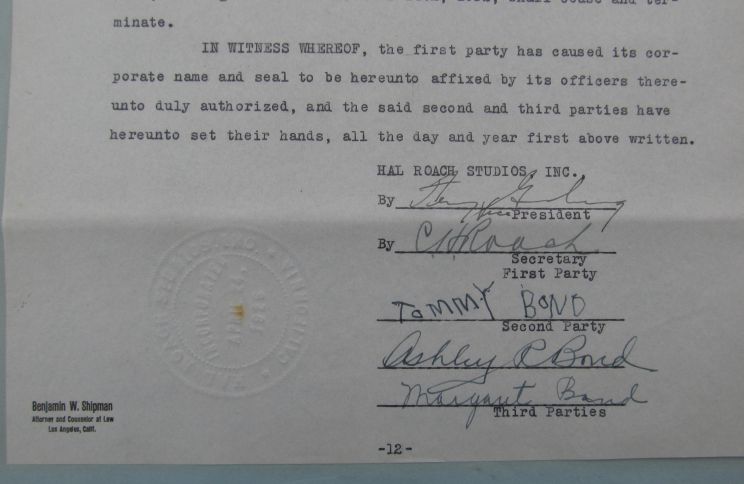 minate.
IN WITNESS WHEREOF, the first party has caused its cor-
porate name and seal to be hereunto affixed by its officers there-
unto duly authorized, and the said second and third parties have
hereunto set their hands, all the day and year first above written.
HAL ROACH STUDIOS, INC.,
By
Vice President
By C H Roach
Secretary
First Party
TOMMY BOND
Second Party
Ashley R Bond
Margaret Bond
Third Parties
Benjamin W. Shipman
Attorney and Counselor at Law
Los Angeles, Calif.
-12-